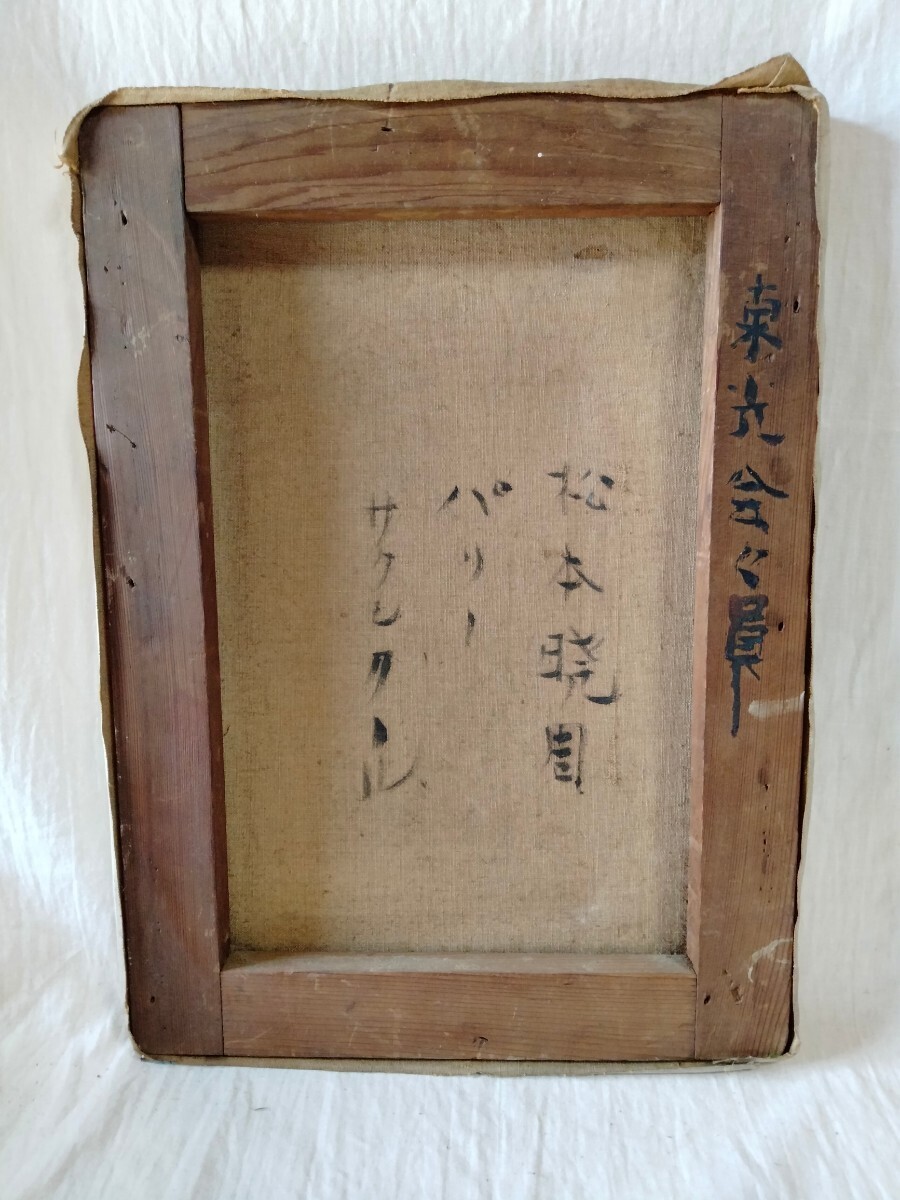 東光会々員
松本暁周
パリー
サクレクール